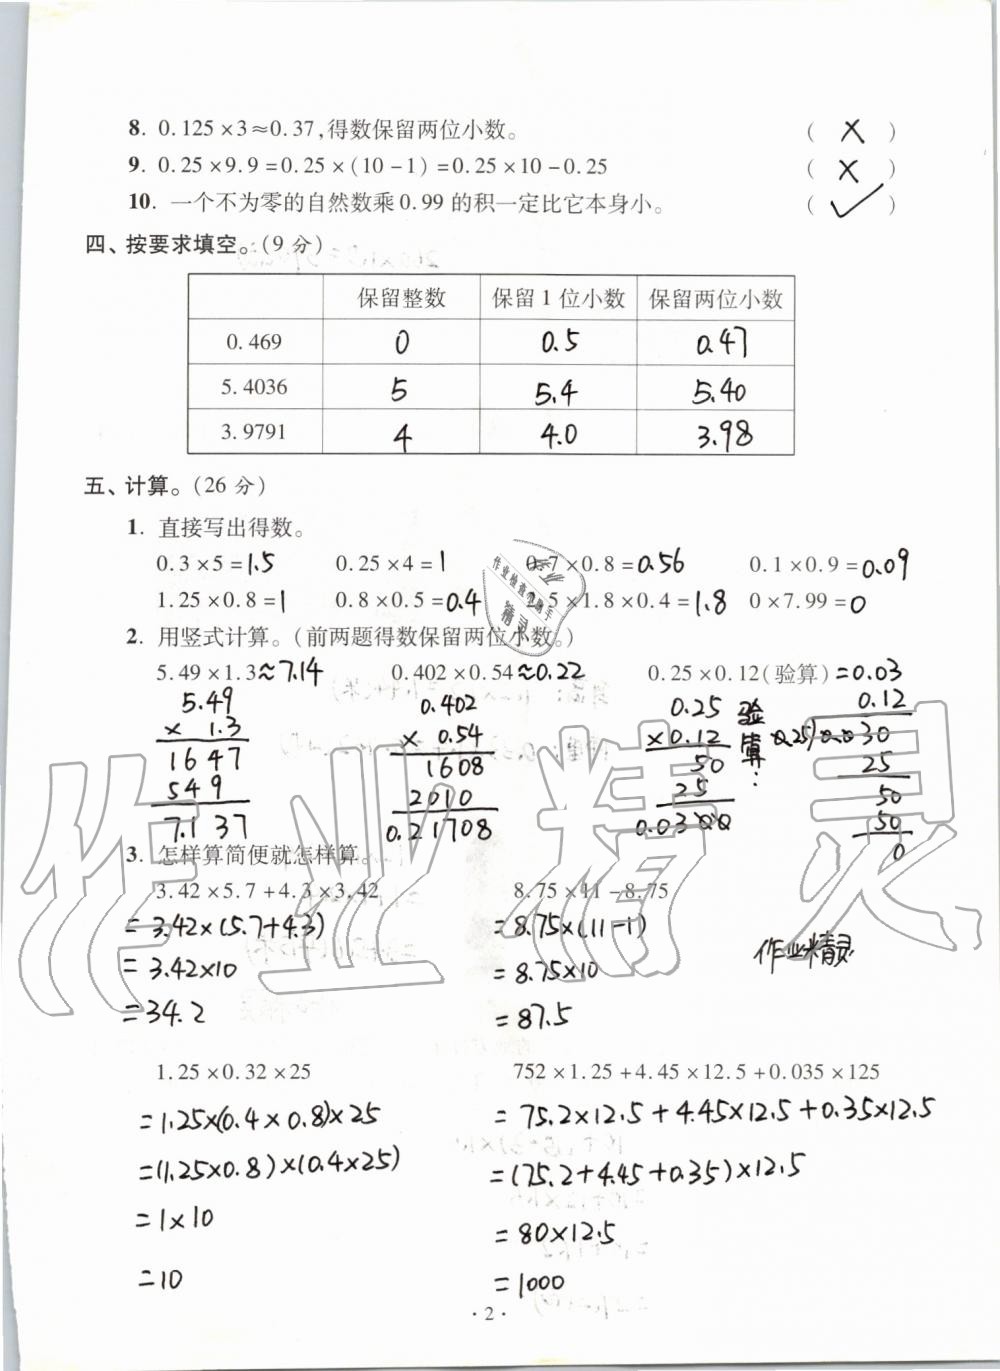 8. 0.125×3≈0.37,得数保留两位小数。 (×)
9. 0.25×9.9=0.25×(10-1)=0.25×10-0.25 (×)
10. 一个不为零的自然数乘0.99的积一定比它本身小。 (✓)
四、按要求填空。(9分)
保留整数 保留1位小数 保留两位小数
0.469 0 0.5 0.47
5.4036 5 5.4 5.40
3.9791 4 4.0 3.98
五、计算。(26分)
1. 直接写出得数。
0.3×5=1.5 0.25×4=1 0.7×0.8=0.56 0.1×0.9=0.09
1.25×0.8=1 0.8×0.5=0.4 2.5×1.8×0.4=1.8 0×7.99=0
作业检查小助手
精灵
2. 用竖式计算。(前两题得数保留两位小数。)
5.49×1.3≈7.14 0.402×0.54≈0.22 0.25×0.12(验算)=0.03
5.49
×1.3
1647
549
7.137
0.402
×0.54
1608
2010
0.21708
0.25
×0.12
50
25
0.0300
验算:
0.12
0.25)0.030
25
50
50
0
3. 怎样算简便就怎样算。
3.42×5.7+4.3×3.42 8.75×11-8.75
=3.42×(5.7+4.3) =8.75×(11-1)
=3.42×10 =8.75×10
=34.2 =87.5
作业精灵
作业精灵
1.25×0.32×25 752×1.25+4.45×12.5+0.035×125
=1.25×(0.4×0.8)×25 =75.2×12.5+4.45×12.5+0.35×12.5
=(1.25×0.8)×(0.4×25) =(75.2+4.45+0.35)×12.5
=1×10 =80×12.5
=10 =1000
·2·